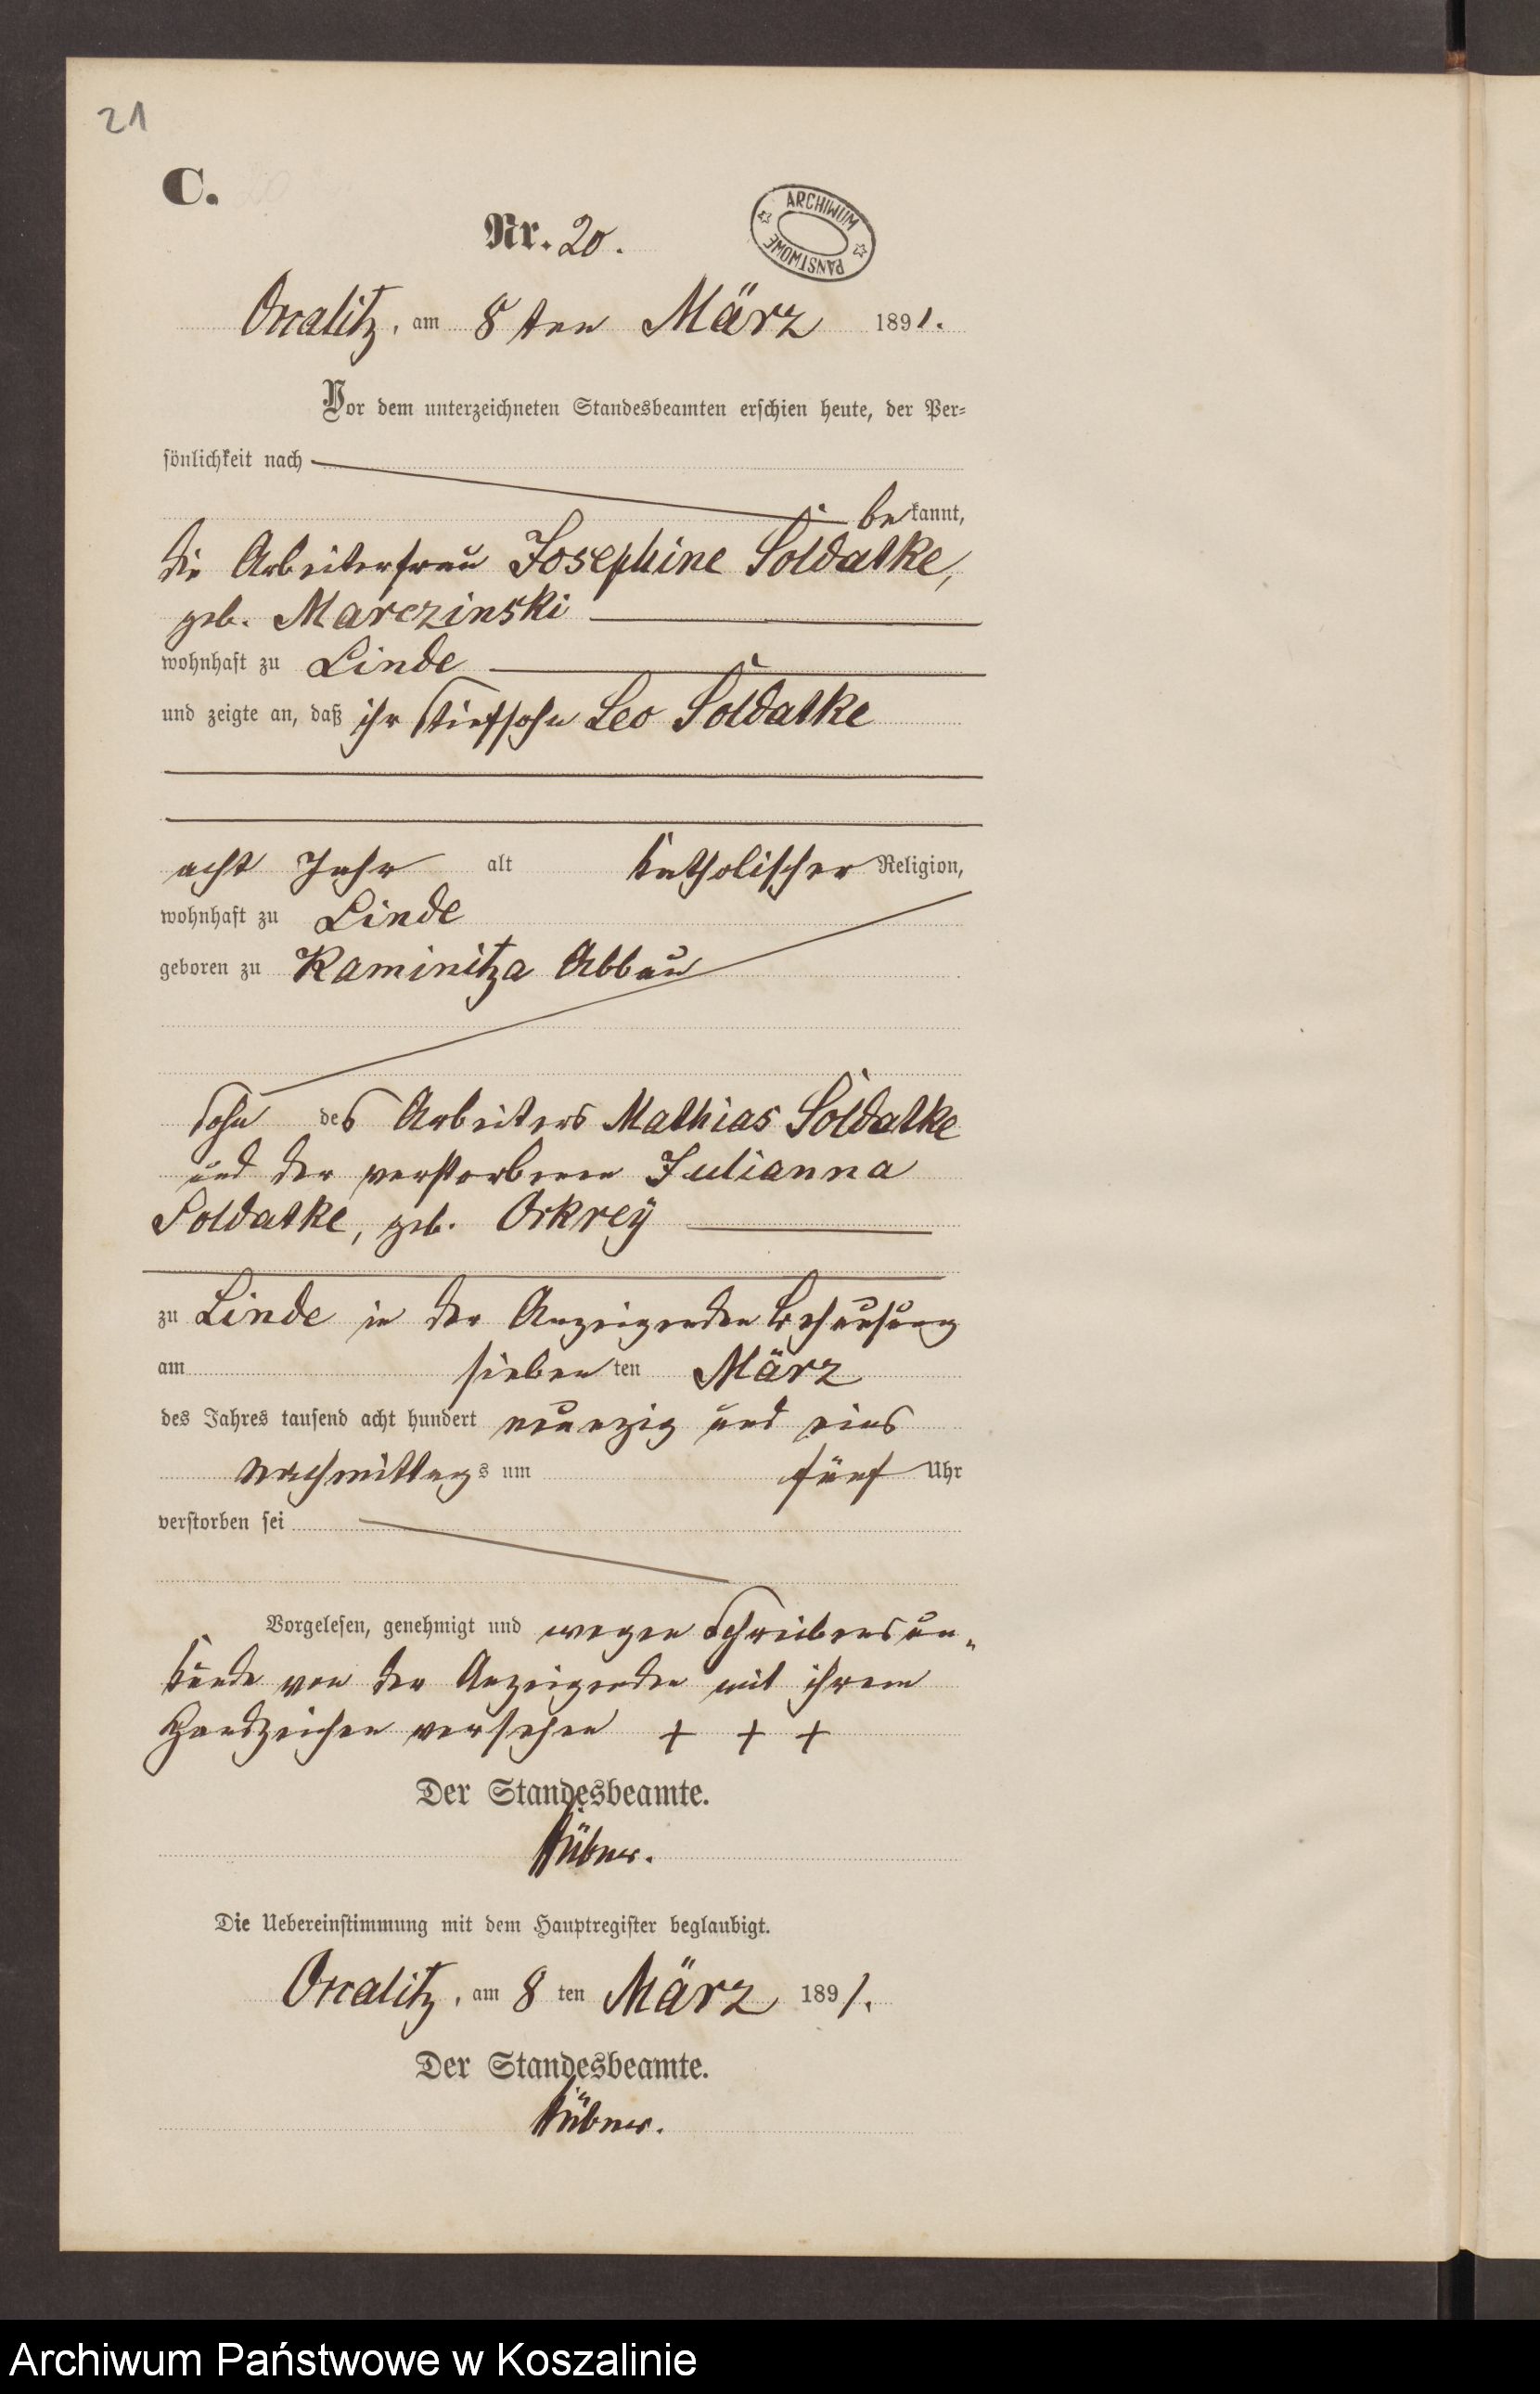 21
C.
Nr. 20.
ARCHIWUM PAŃSTWOWE
am 8 ten März 1891.
Vor dem unterzeichneten Standesbeamten erschien heute, der Per=
sönlichkeit nach
bekannt,
die Arbeiterfrau Josephine Soldatke,
geb. Marczinski
wohnhaft zu Linde
und zeigte an, daß ihr Stiefsohn Leo Soldatke
acht Jahr alt katholischer Religion,
wohnhaft zu Linde
geboren zu Kaminitza Abbau
Sohn des Arbeiters Mathias Soldatke
und der verstorbenen Julianna
Soldatke, geb. Orkrey
zu Linde in der Anzeigenden Behausung
am sieben ten März
des Jahres tausend acht hundert neunzig und eins
Nachmittags um fünf Uhr
verstorben sei
Vorgelesen, genehmigt und wegen Schreibensun„
kunde von der Anzeigenden mit ihrem
Handzeichen versehen + + +
Der Standesbeamte.
Die Uebereinstimmung mit dem Hauptregister beglaubigt.
am 8 ten März 1891.
Der Standesbeamte.
Archiwum Państwowe w Koszalinie